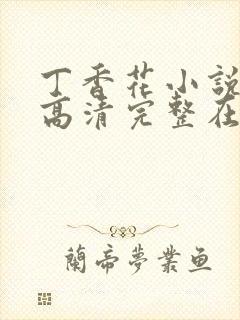 丁香花小說
高清完整在
蘭帝夢業鱼